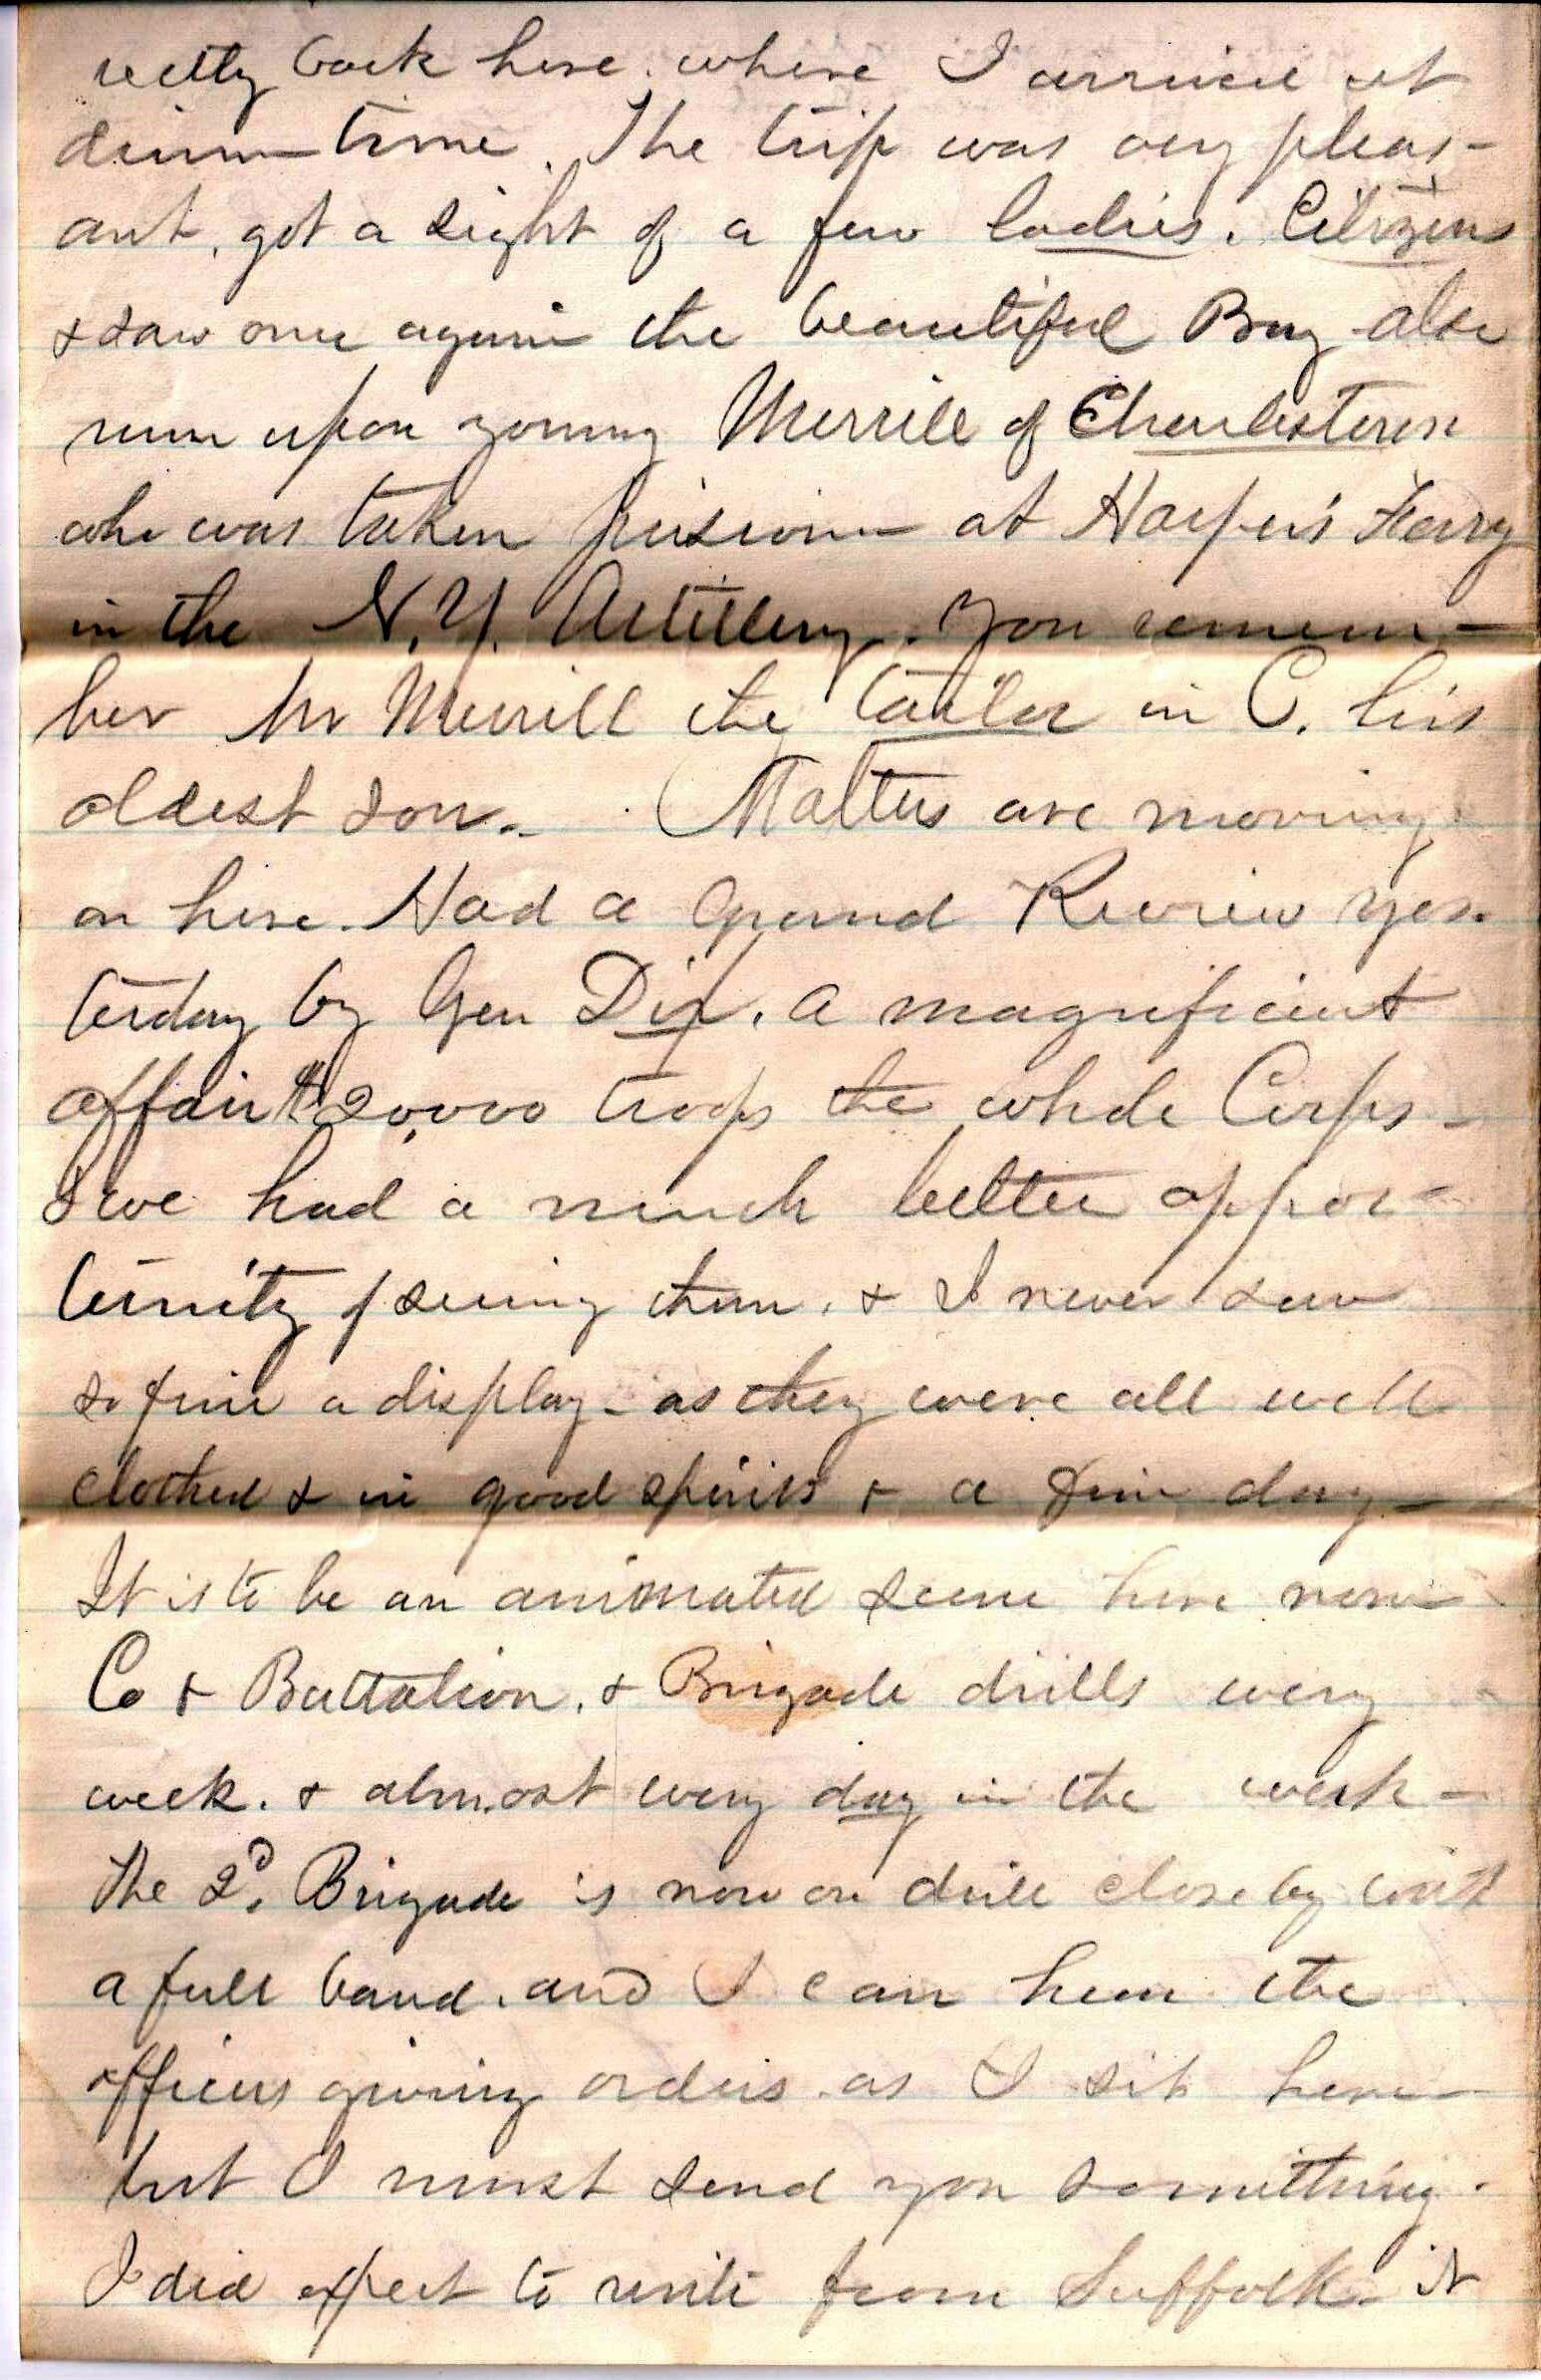 rectly back here. where I arrived at
dinner time. The trip was very pleas-
ant. got a sight of a few ladies. Citizens
& saw once again the beautiful Bay also
run upon young Merrill of Charlestown
who was taken prisoner at Harper's Ferry
in the N.Y. Artillery. You remem-
ber Mr Merrill the tailor in C. his
oldest son. Matters are moving
on here. Had a Grand Review yes-
terday by Gen Dix. a magnificent
affair 20,000 troops the whole Corps -
& we had a much better oppor-
tunity of seeing them. & I never saw
so fine a display - as they were all well
clothed & in good spirits & a fine day -
It is to be an animated scene here now
Co & Battalion. & Brigade drills every
week. & almost every day in the week -
The 2d. Brigade is now on drill close by with
a full band. and I can hear the
officers giving orders as I sit here
but I must send you something.
I did expect to write from Suffolk - it